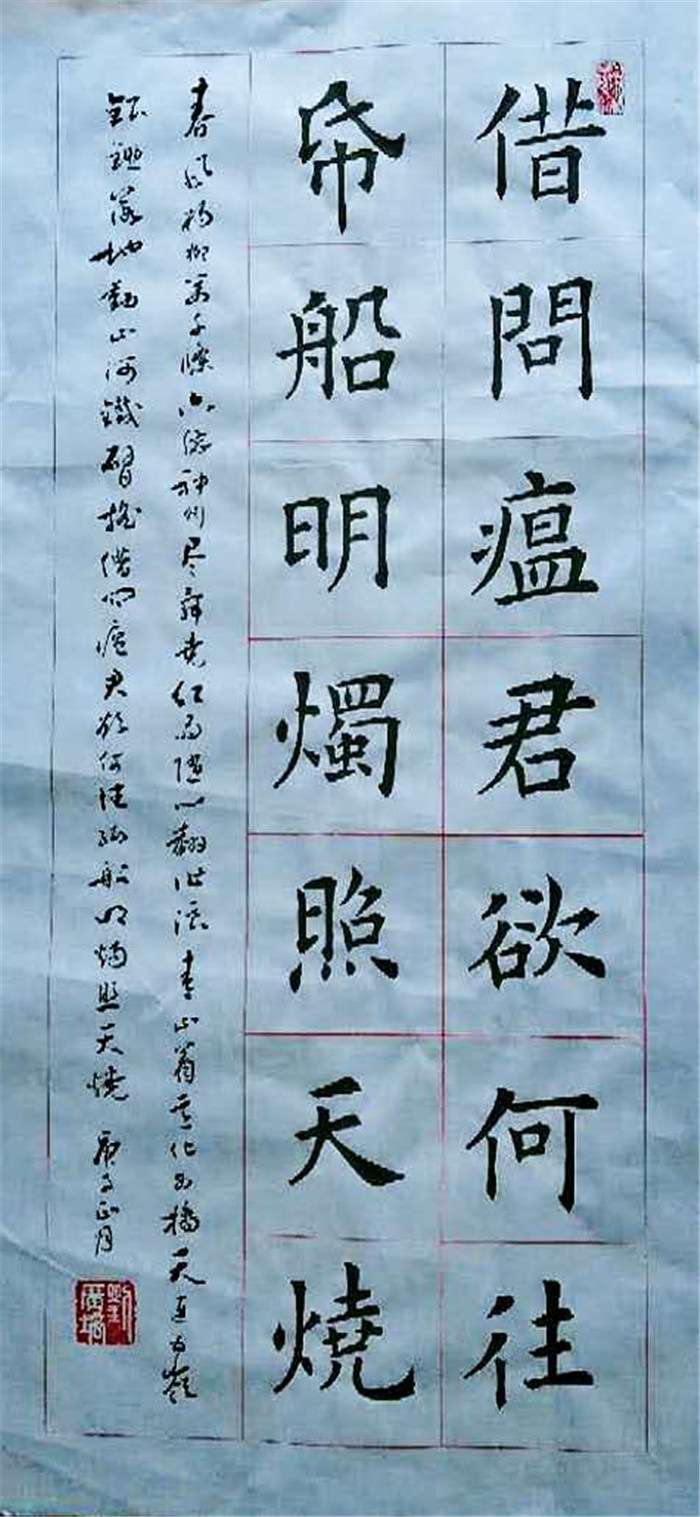 借問瘟君欲何往
帋船明燭照天燒
春风杨柳万千條六億神州尽舜尧红雨随心翻作浪青山着意化为橋天连五嶺
銀鋤落地動山河鐵臂搖借问瘟君欲何往纸船明烛照天燒 庚子正月